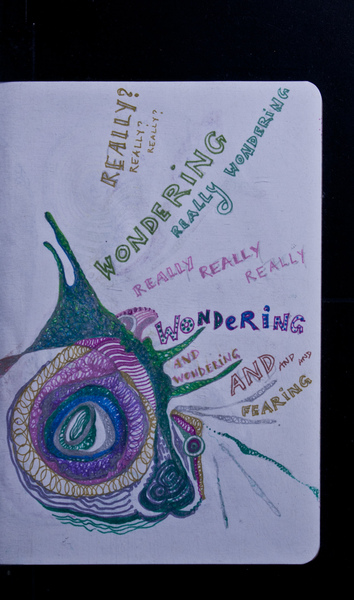 REALLY?
REALLY?
REALLY?
WONDERING
REALLY WONDERING
REALLY REALLY REALLY
WONDERING
AND WONDERING
AND AND AND
FEARING